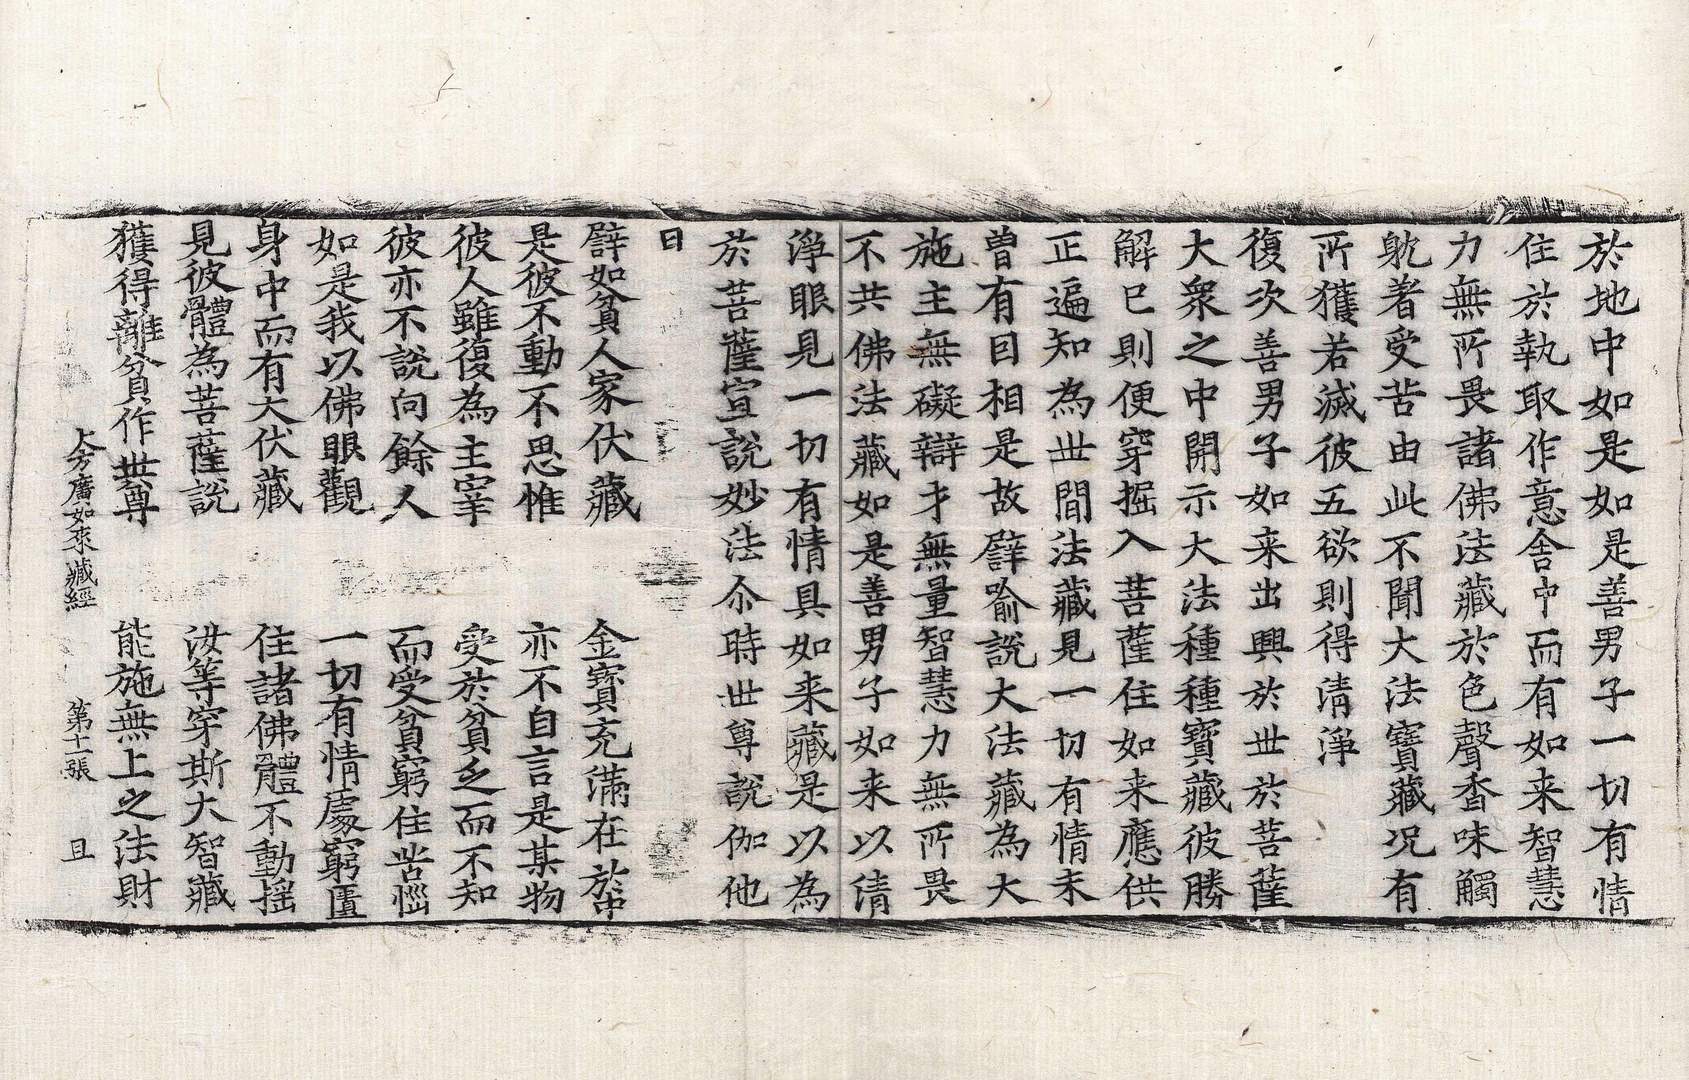 於地中如是如是善男子一切有情
住於執取作意舍中而有如来智慧
力無所畏諸佛法藏於色聲香味觸
躭著受苦由此不聞大法寶藏况有
所獲若滅彼五欲則得清淨
復次善男子如来出興於世於菩薩
大衆之中開示大法種種寶藏彼勝
解已則便穿掘入菩薩住如来應供
正遍知為世間法藏見一切有情未
曽有因相是故譬喻說大法藏為大
施主無礙辯才無量智慧力無所畏
不共佛法藏如是善男子如来以清
淨眼見一切有情具如来藏是以為
於菩薩宣說妙法尒時世尊說伽他
曰
譬如貧人家伏藏　金寶充滿在於中
是彼不動不思惟　亦不自言是某物
彼人雖復為主宰　受於貧乏而不知
彼亦不說向餘人　而受貧窮住苦惱
如是我以佛眼觀　一切有情處窮匱
身中而有大伏藏　住諸佛體不動摇
見彼體為菩薩說　汝等穿斯大智藏
獲得離貧作世尊　能施無上之法財
大方廣如來藏經　第十一張　且